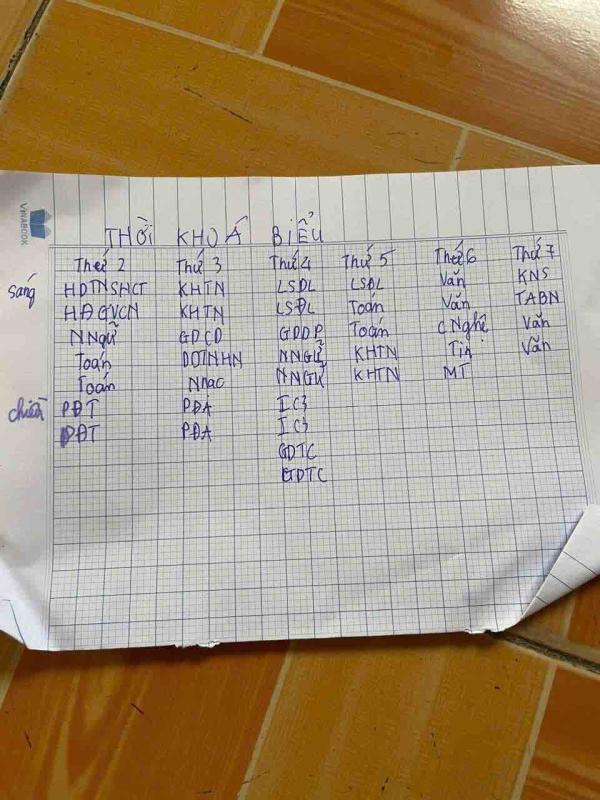 VINABOOK
THỜI KHOÁ BIỂU
Thứ 2 Thứ 3 Thứ 4 Thứ 5 Thứ 6 Thứ 7
sáng HDTNSHCT KHTN LSĐL LSĐL Văn KNS
HĐGVCN KHTN LSĐL Toán Văn TABN
NNgữ GDCD GDDP Toán CNghê Văn
Toán NNGỮ KHTN Tin Văn
Toán Nhạc NNGỮ KHTN MT
chiều PĐT PĐA IC3
PĐT PĐA IC3
GDTC
GDTC